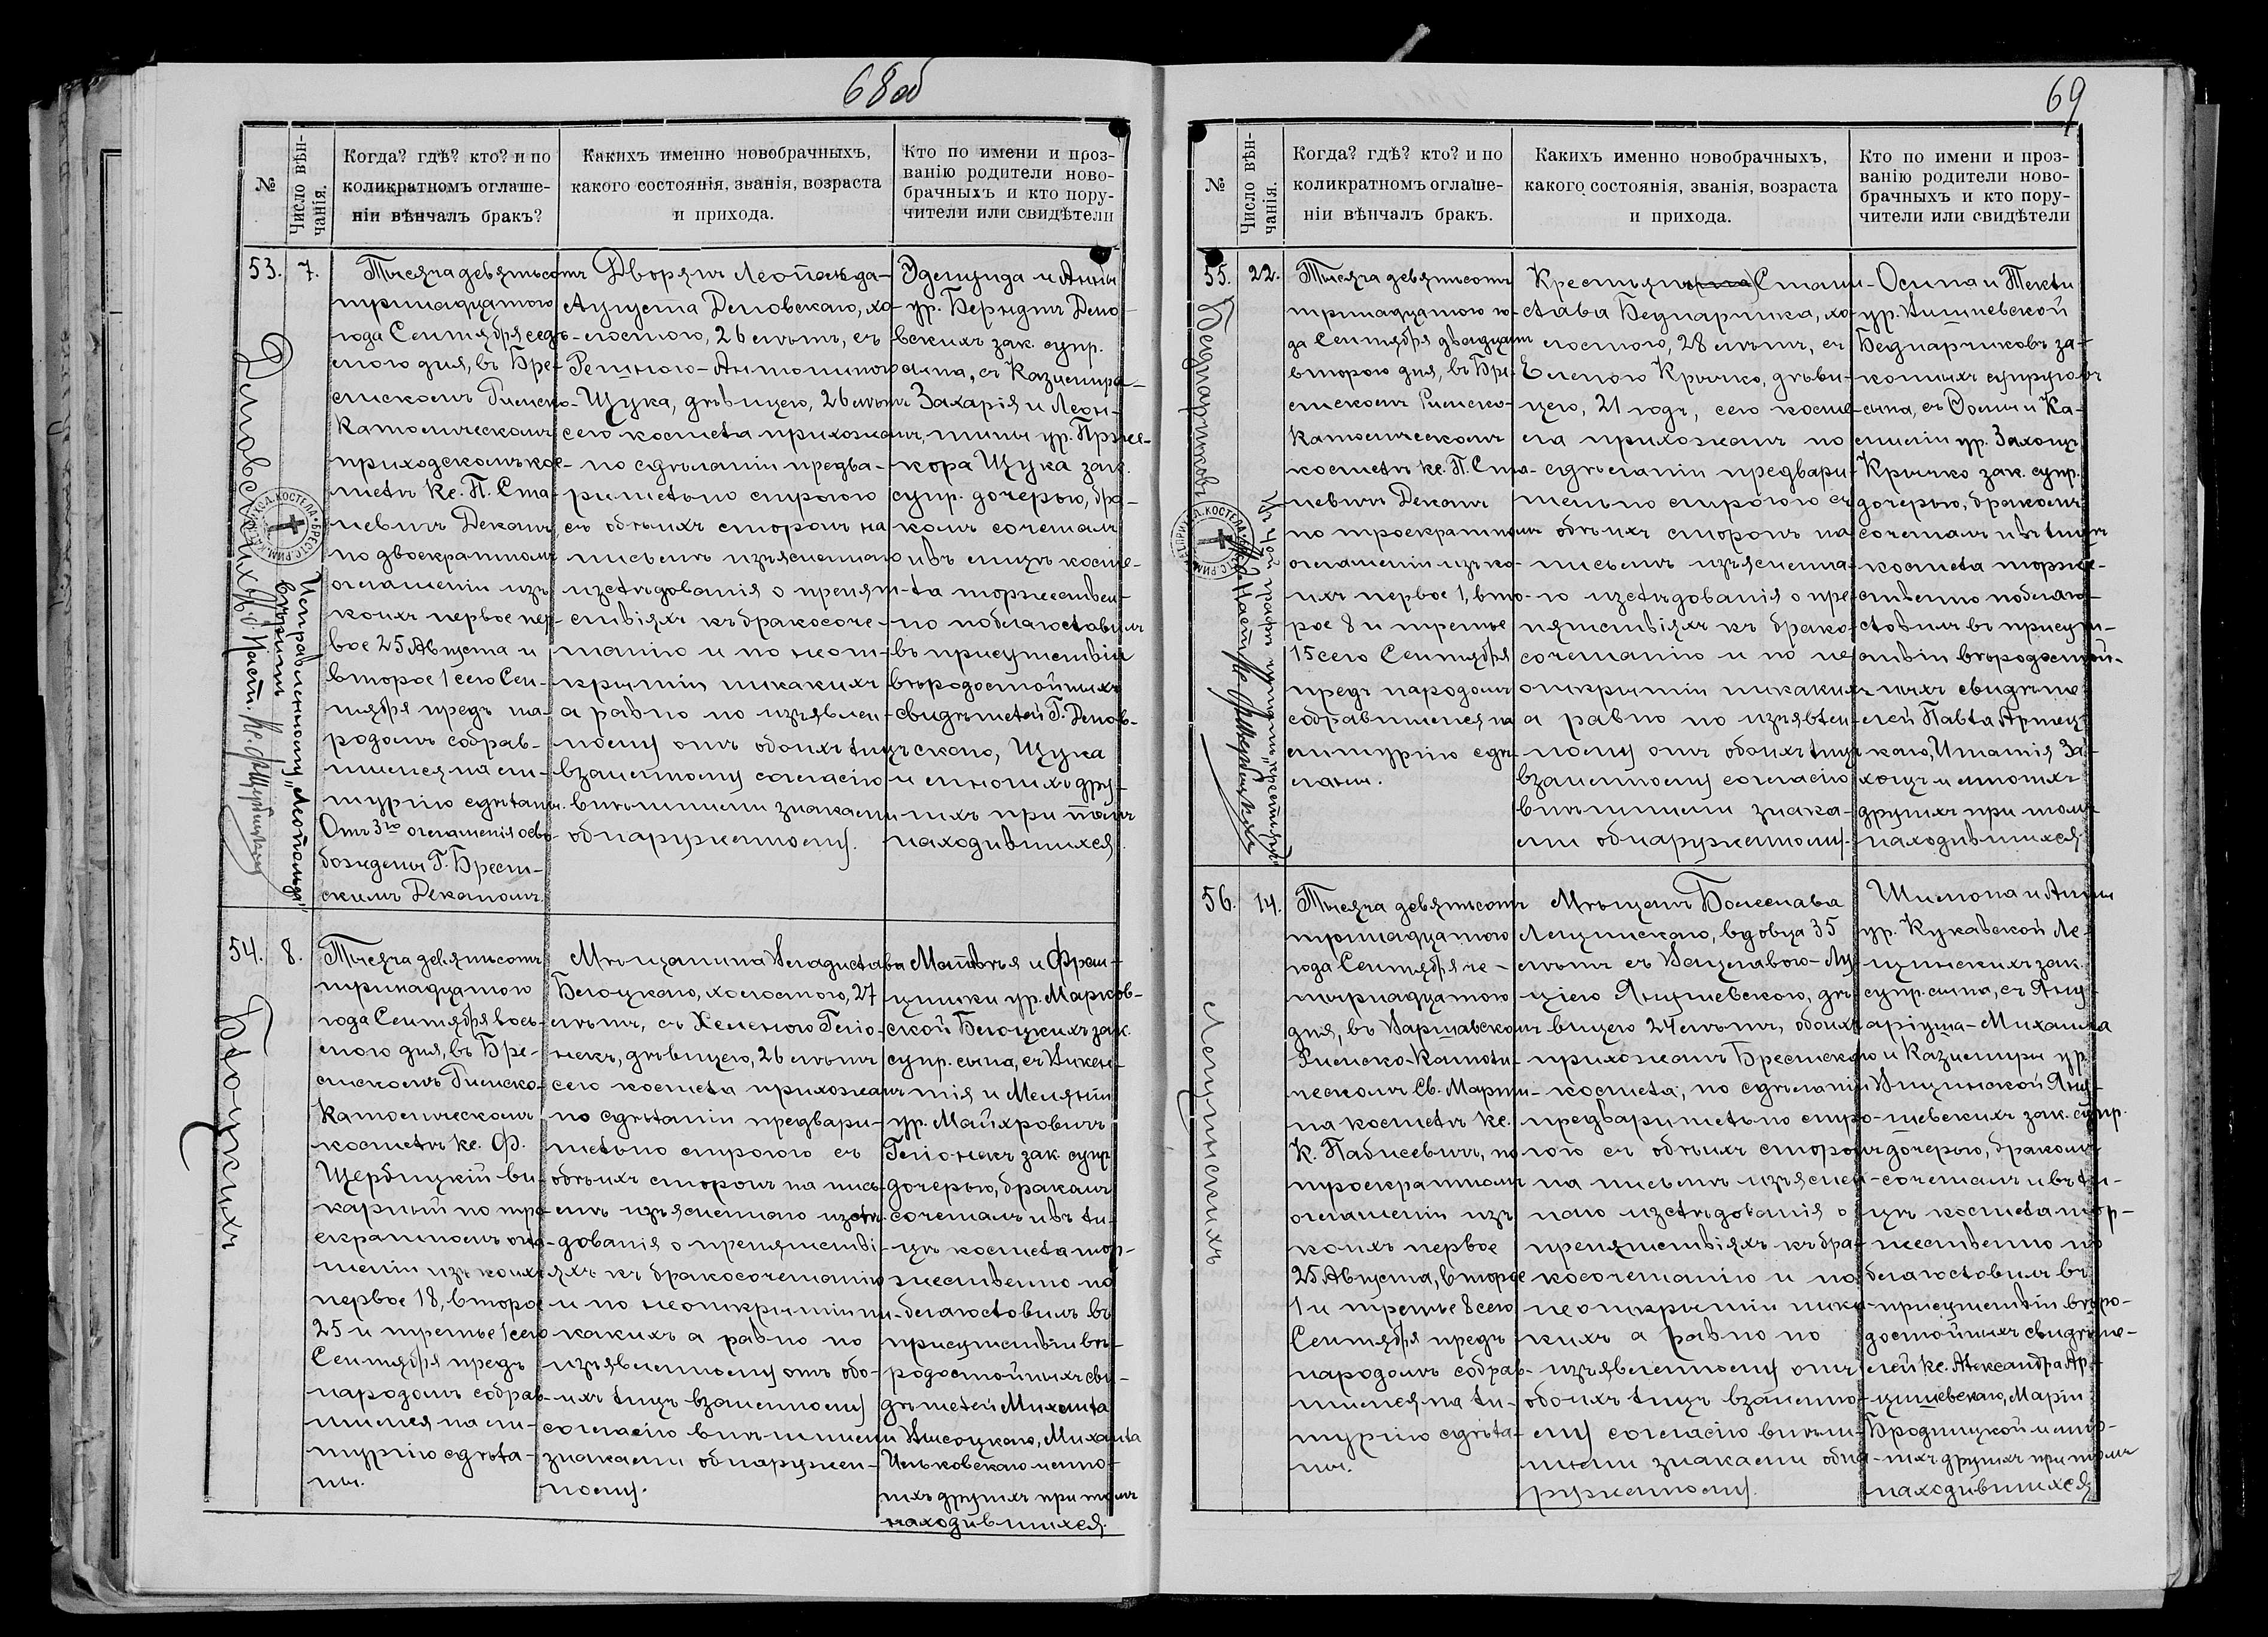 68об
№
Число вѣн-
чанія.
Когда? гдѣ? кто? и по
коликратномъ оглаше-
ніи вѣнчалъ бракъ?
Какихъ именно новобрачныхъ,
какого состоянія, званія, возраста
и прихода.
Кто по имени и проз-
ванію родители ново-
брачныхъ и кто пору-
чители или свидѣтели
53.
7.
Тысяча девятьсотъ
тринадцатого
года Сентября седь-
мого дня, въ Бре-
стскомъ Римско-
Католическомъ
приходскомъ ко-
стелѣ Кс. П. Ста-
невичъ Деканъ
по двоекратномъ
оглашеніи изъ
коихъ первое пер
вое 25 Августа и
второе 1 сего Сен-
тября предъ на-
родомъ собрав-
шимся на ли-
тургію сдѣланы.
Отъ 3го оглашенія осво-
божденъ Г. Брест-
скимъ Деканомъ.
Дворянъ Леопакда-
Августа Деловскаго, хо-
лостого, 26 лѣтъ, съ
Региною-Антониною
Щука, дѣвицею, 26 лѣтъ
сего костела прихожанъ,
по сдѣланіи предва-
рительно строгого
съ обѣихъ сторонъ на
письмѣ изъясненнаго
изслѣдованія о препят-
ствіяхъ къ бракосоче-
танію и по неот-
крытіи никакихъ
а равно по изъявлен-
ному отъ обоихъ лицъ
взаимному согласію
внѣшними знаками
обнаруженному.
Эдмунда и Анны
ур. Бернд
вскихъ зак. супр.
сына, съ Казимира-
Захарія и Леон-
тины ур.
кора Щука зак.
супр. дочерью, бра-
комъ сочеталъ
и въ лицѣ косте-
ла торжествен-
но поблагословилъ
въ присутствіи
вѣродостойныхъ
свидѣтелей Г. Делов-
скаго, Щука
и многихъ дру-
гихъ при томъ
находившихся.
Исправленному „Леопольда"
вѣрить
54.
8.
Бѣлоцкихъ
Тысяча девятьсотъ
тринадцатого
года Сентября вось-
мого дня, въ Бре-
стскомъ Римско-
Католическомъ
костелѣ кс. Ф.
Щербицкій ви-
карный по тро-
екратномъ огла-
шеніи изъ коихъ
первое 18, второе
25 и третье 1 сего
Сентября предъ
народомъ собрав-
шимся на ли-
тургію сдѣла-
ны.
Мѣщанина Владислава
Бѣлоцкаго, холостого, 27
лѣтъ, съ Хеленою Гего-
некъ, дѣвицею, 26 лѣтъ
сего костела прихожанъ
по сдѣланіи предвари-
тельно строгого съ
обѣихъ сторонъ на пись-
мѣ изъясненнаго изслѣ-
дованія о препятстві-
яхъ къ бракосочетанію
и по неоткрытіи ни-
какихъ а равно по
изъявленному отъ обо-
ихъ лицъ взаимному
согласію внѣшними
знаками обнаружен-
ному.
Матвѣя и Фран-
цишки ур. Марков-
ской Бѣлоцкихъ зак.
супр. сына, съ Викен-
тія и Меляніи
ур. Майхровичъ
Гегонекъ зак. супр.
дочерью, бракомъ
сочеталъ и въ ли-
цѣ костела тор-
жественно по
благословилъ въ
присутствіи вѣ-
родостойныхъ сви-
дѣтелей Михаила
Высоцкаго, Михаила
Ильковскаго и мно-
гихъ другихъ при томъ
находившихся.
69
№
Число вѣн-
чанія.
Когда? гдѣ? кто? и по
коликратномъ оглаше-
ніи вѣнчалъ бракъ.
Какихъ именно новобрачныхъ,
какого состоянія, званія, возраста
и прихода.
Кто по имени и проз-
ванію родители ново-
брачныхъ и кто пору-
чители или свидѣтели
55.
22.
Беднарчиковъ
Тысяча девятьсотъ
тринадцатого го-
да Сентября двадцать
второго дня, въ Бре-
стскомъ Римско-
Католическомъ
костелѣ кс. П. Ста-
невичъ Деканъ
по троекратномъ
оглашеніи изъ ко-
ихъ первое 1, вто-
рое 8 и третье
15 сего Сентября
предъ народомъ
собравшимся на
литургію сдѣ-
ланы.
Крестьян Стани-
слава Беднарчика, хо-
лостого, 28 лѣтъ, съ
Еленою Кричко, дѣви-
цею, 21 годъ, сего косте-
ла прихожанъ по
сдѣланіи предвари-
тельно строгого съ
обѣихъ сторонъ на
письмѣ изъясненна-
го изслѣдованія о пре-
пятствіяхъ къ брако-
сочетанію и по не
открытіи никакихъ
а равно по изъявлен-
ному отъ обоихъ лицъ
взаимному согласію
внѣшними знака-
ми обнаруженному.
Осипа и Текли
ур. Вишневской
Беднарчиковъ за-
конныхъ супруговъ
сына, съ Фомы и Ка-
миліи ур. Захоцъ
Кричко зак. супр.
дочерью, бракомъ
сочеталъ и въ лицѣ
костела торже-
ственно поблаго-
словилъ въ присут-
ствіи вѣродостой-
ныхъ свидѣте-
лей Павла Армец-
каго, Игнатія За-
хоцъ и многихъ
другихъ при томъ
находившихся.
56.
14.
Лещинскихъ
Тысяча девятьсотъ
тринадцатого
года Сентября че-
тырнадцатого
дня, въ Варшавскомъ
Римско-Католи-
ческомъ Св. Марти-
на костелѣ кс.
К. Пабисевичъ, по
троекратномъ
оглашеніи изъ
коихъ первое
25 Августа, второе
1 и третье 8 сего
Сентября предъ
народомъ собрав-
шимся на ли-
тургію сдѣла-
ны.
Мѣщанъ Болеслава
Лещинскаго, вдовца 35
лѣтъ съ Вацлавою-Лу-
ціею Янушевскою, дѣ-
вицею 24 лѣтъ, обоихъ
прихожанъ Брестскаго
костела, по сдѣланіи
предварительно стро-
гого съ обѣихъ сторонъ
на письмѣ изъяснен-
наго изслѣдованія о
препятствіяхъ къ бра-
косочетанію и по
неоткрытіи ника-
кихъ а равно по
изъявленному отъ
обоихъ лицъ взаимно-
му согласію внѣш-
ними знаками обна-
руженному.
Шимона и Анны
ур. Кукавской Ле-
щинскихъ зак.
супр. сына, съ Яну-
аріуша-Михаила
и Казимиры ур.
Вицинской Яну-
шевскихъ зак. супр.
дочерью, бракомъ
сочеталъ и въ ли-
цѣ костела тор-
жественно по
благословилъ въ
присутствіи вѣро-
достойныхъ свидѣте-
лей кс. Александра Ар-
цишевскаго, Маріи
Бродницкой и мно-
гихъ другихъ при томъ
находившихся.